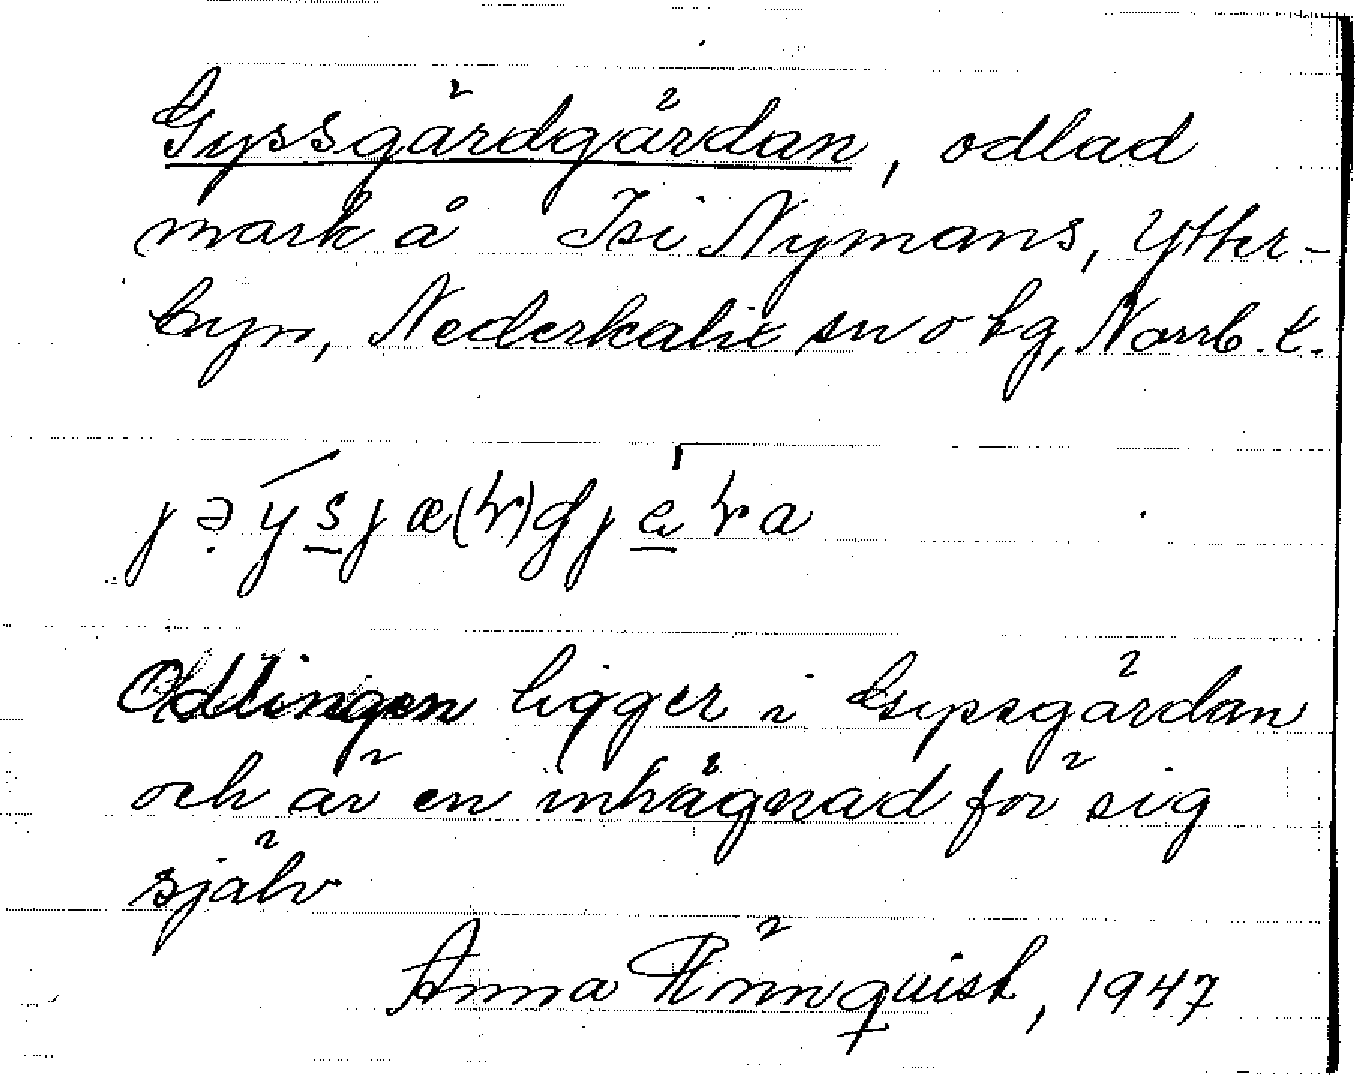 Gyssgärdgärdan, odlad
mark å Isi Nymans, Ytter-
byn, Nederkalix sn o tg, Norrb. l.
Odlingen ligger i Gyssgärdan
och är en inhägnad för sig
själv
Anna Rönnquist, 1947